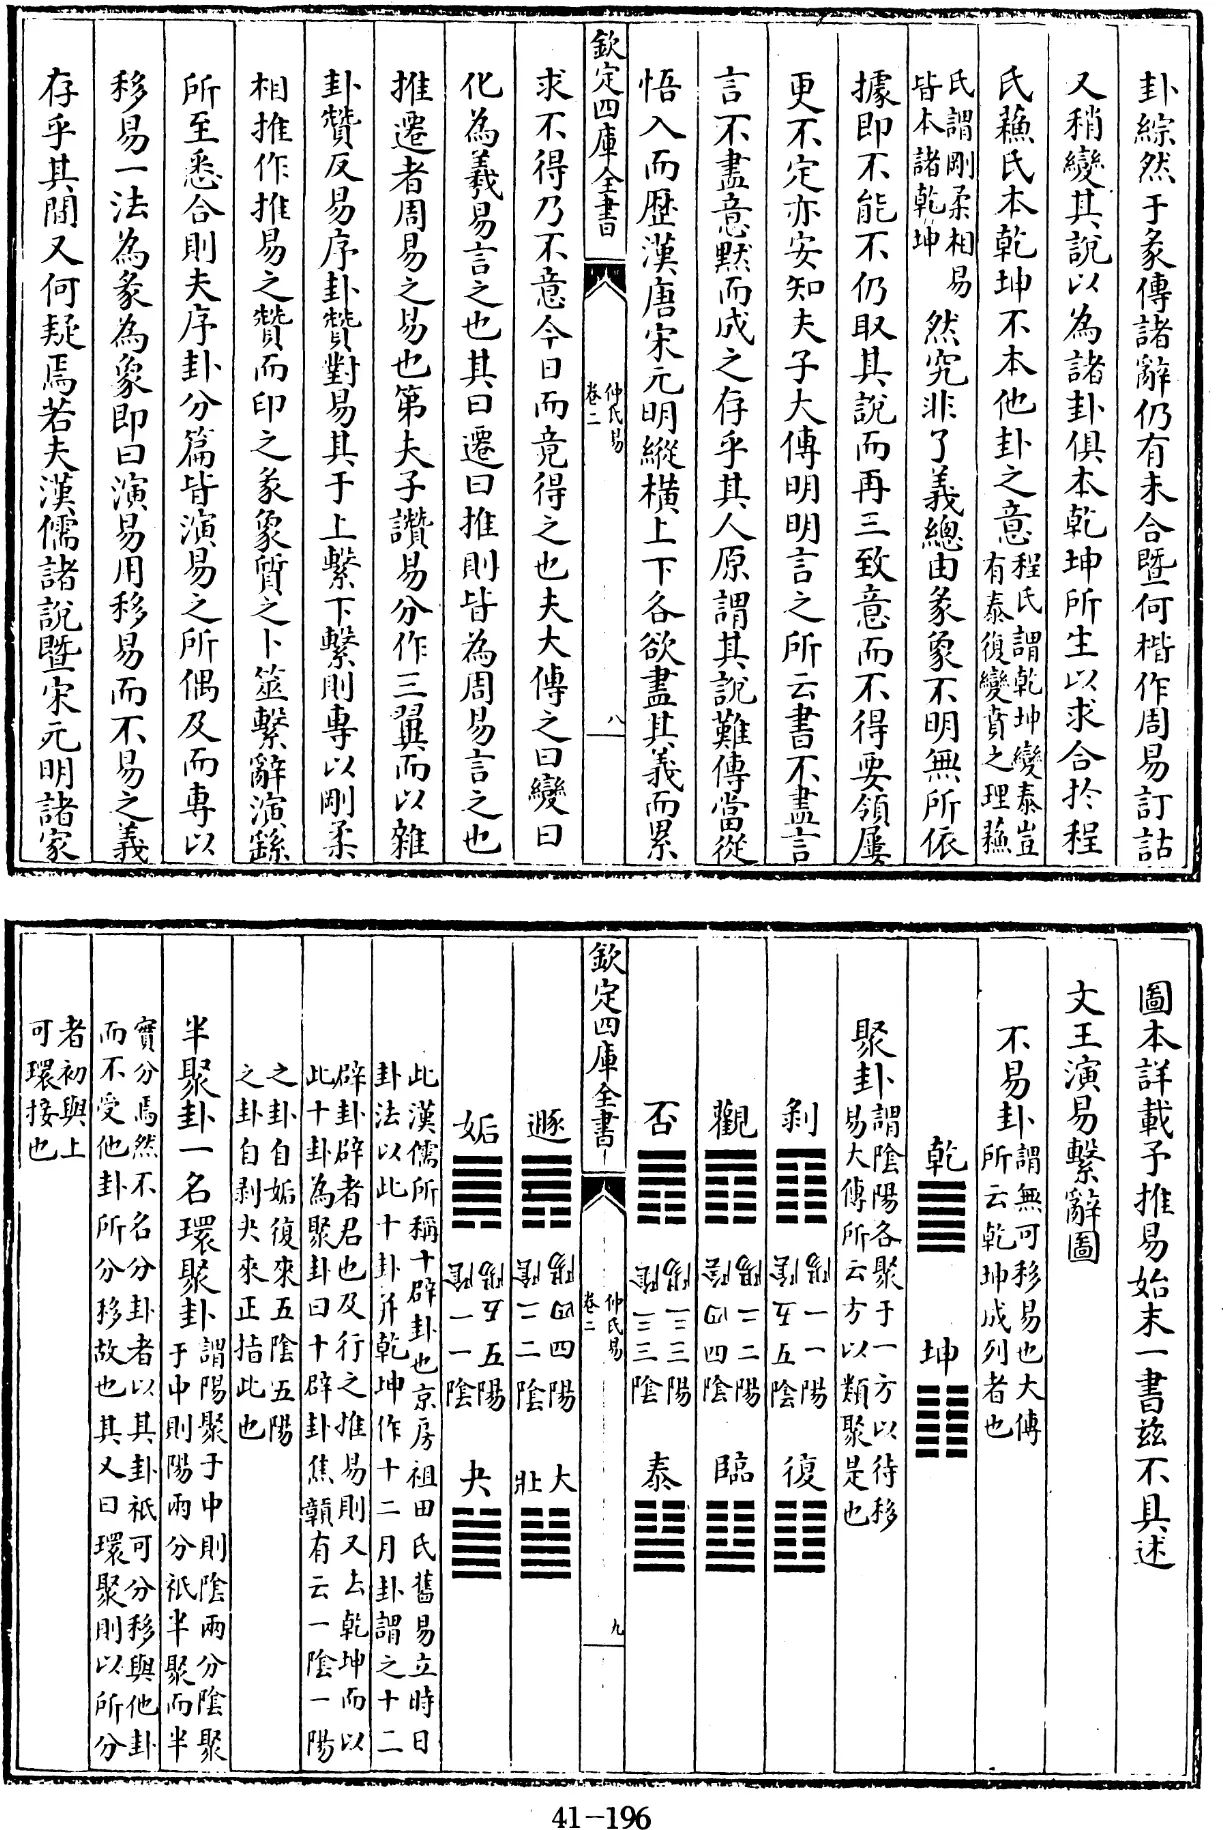 卦綜然于彖傳諸辭仍有未合暨何楷作周易訂詁
又稍變其說以為諸卦俱本乾坤所生以求合於程
氏蘓氏本乾坤不本他卦之意程氏謂乾坤變泰豈
有泰復變賁之理蘓
氏謂剛柔相易
皆本諸乾坤
然究非了義總由彖象不明無所依
據即不能不仍取其說而再三致意而不得要領屢
更不定亦安知夫子大傳明明言之所云書不盡言
言不盡意默而成之存乎其人原謂其說難傳當從
悟入而歷漢唐宋元明縱橫上下各欲盡其義而累
欽定四庫全書
仲氏易
卷二
八
求不得乃不意今日而竟得之也夫大傳之曰變曰
化為羲易言之也其曰遷曰推則皆為周易言之也
推遷者周易之易也第夫子讚易分作三翼而以雜
卦贊反易序卦贊對易其于上繫下繫則專以剛柔
相推作推易之贊而印之彖象質之卜筮繫辭演繇
所至悉合則夫序卦分篇皆演易之所偶及而專以
移易一法為彖為象即曰演易用移易而不易之義
存乎其間又何疑焉若夫漢儒諸說暨宋元明諸家
圖本詳載予推易始末一書茲不具述
文王演易繫辭圖
不易卦謂無可移易也大傳
所云乾坤成列者也
乾
坤
聚卦謂陰陽各聚于一方以待移
易大傳所云方以類聚是也
剝
陽一一陽
陰五五陰
復
觀
陽二二陽
陰四四陰
臨
否
陽三三陽
陰三三陰
泰
欽定四庫全書
仲氏易
卷二
九
遯
陽四四陽
陰二二陰
大
壯
姤
陽五五陽
陰一一陰
夬
此漢儒所稱十辟卦也京房祖田氏舊易立時日
卦法以此十卦幷乾坤作十二月卦謂之十二
辟卦辟者君也及行之推易則又去乾坤而以
此十卦為聚卦曰十辟卦焦贛有云一陰一陽
之卦自姤復來五陰五陽
之卦自剝夬來正指此也
半聚卦一名環聚卦謂陽聚于中則陰兩分陰聚
于中則陽兩分祇半聚而半
實分焉然不名分卦者以其卦祇可分移與他卦
而不受他卦所分移故也其又曰環聚則以所分
者初與上
可環接也
41-196